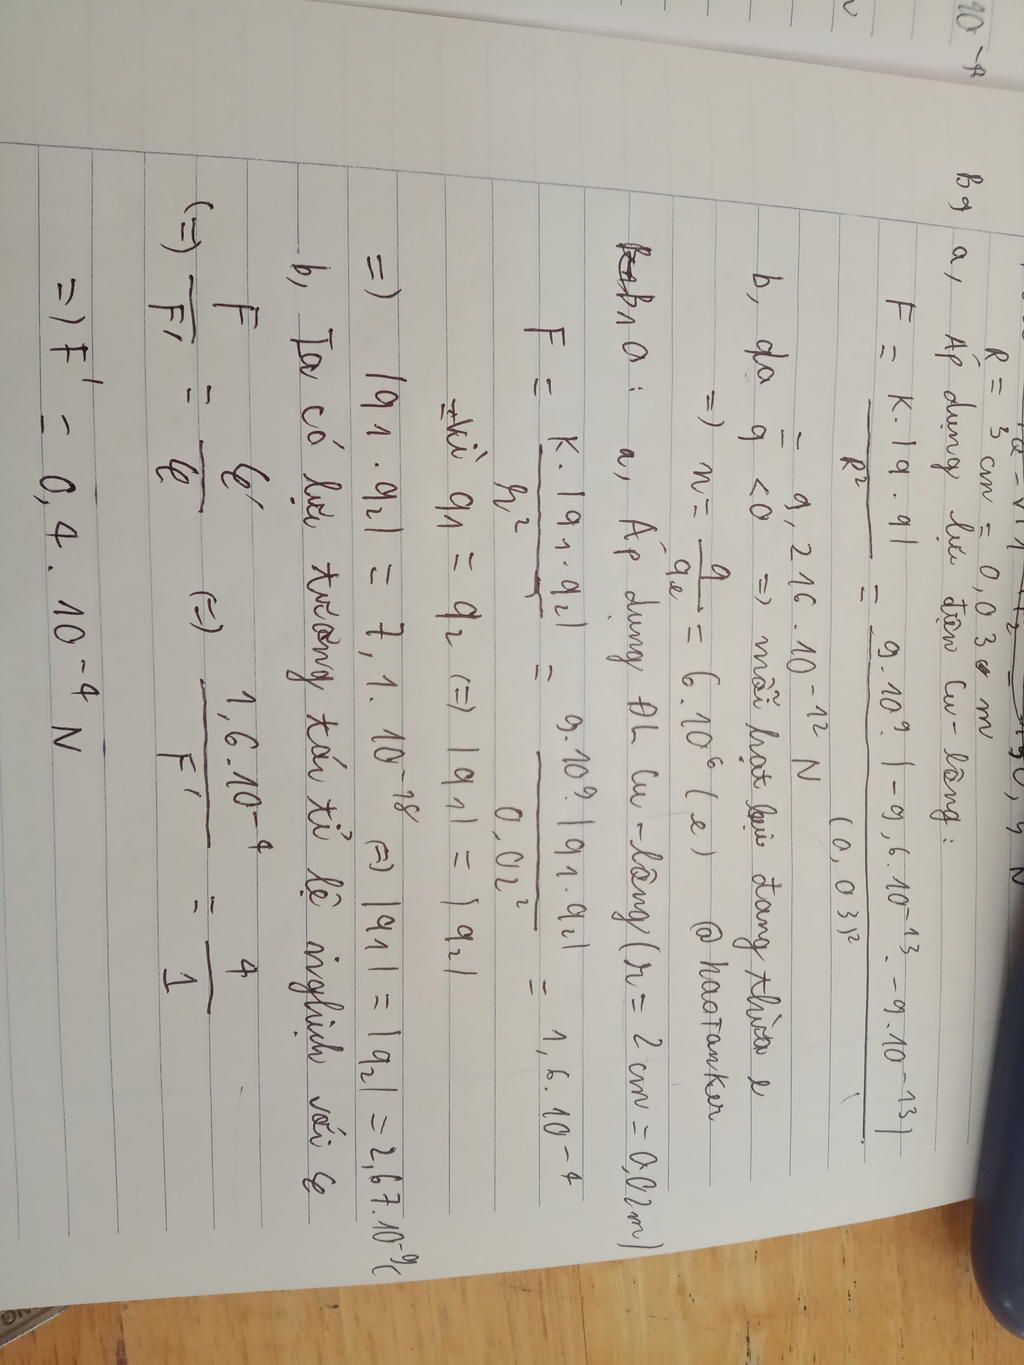 R = 3 cm = 0,03 m
B9 a, Áp dụng lực điện Cu-lông:
F = K.|q.q| / R² = 9.10⁹.|-9,6.10⁻¹³.-9.10⁻¹³| / (0,03)²
= 9,216.10⁻¹² N
b, do q < 0 => mỗi hạt bụi đang thừa e
=> n = q / qe = 6.10⁶ (e) @haoTanker
b10: a, Áp dụng ĐL Cu-lông (r = 2 cm = 0,02m)
F = K.|q1.q2| / r² = 9.10⁹.|q1.q2| / 0,02² = 1,6.10⁻⁴
Vì q1 = q2 (=) |q1| = |q2|
=) |q1.q2| = 7,1.10⁻¹⁸ (=) |q1| = |q2| = 2,67.10⁻⁹C
b, Ta có lực tương tác tỉ lệ nghịch với ε
F / F' = ε' / ε (=) 1,6.10⁻⁴ / F' = 4 / 1
=) F' = 0,4.10⁻⁴ N